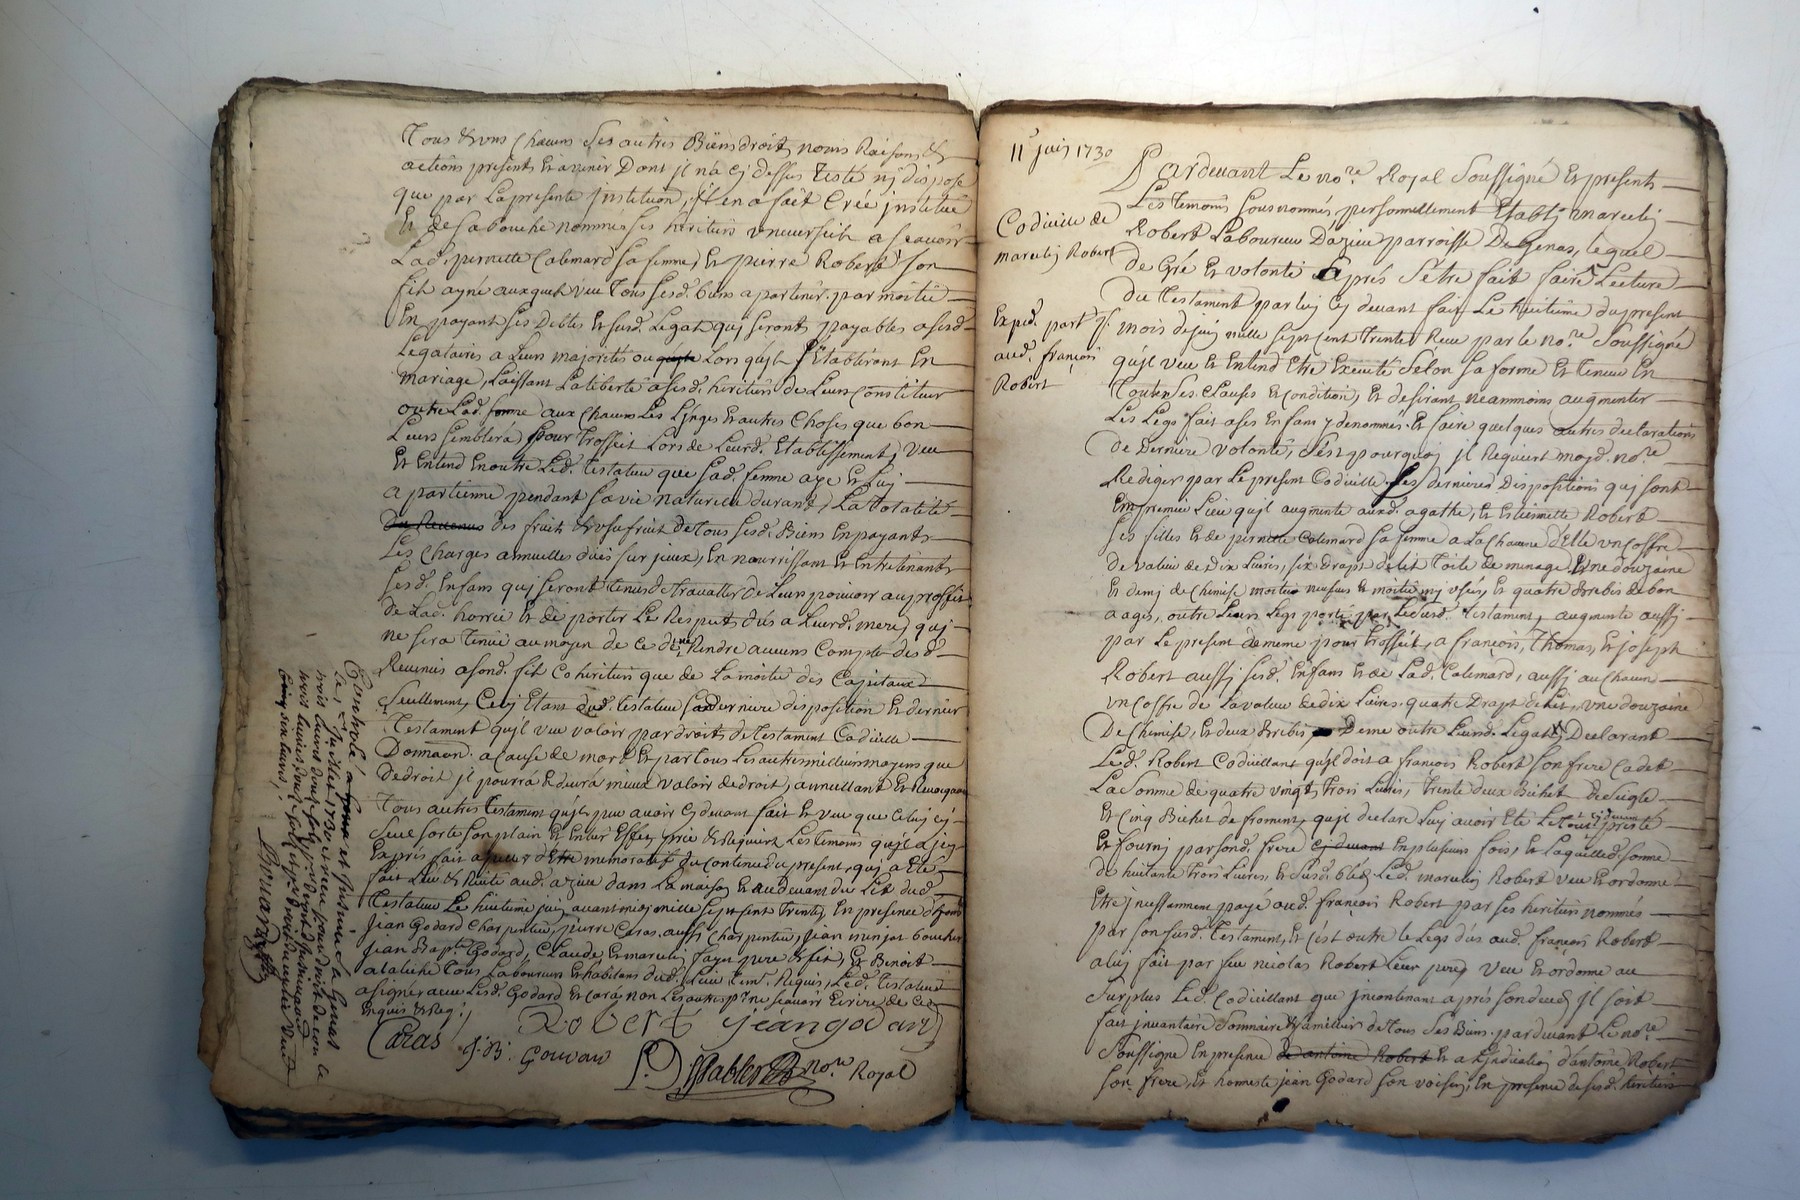 Tous & uns Chacuns ses autres Biens droits noms Raisons &
actions presents et avenir Dont jl n'a cy dessus testé ny disposé
que par la presente jnstitution, jl en a fait Créé jnstitué
et de sa bouche nommés ses heritiers universels a sçavoir
Lad. pernette Calemard sa femme, et pierre Robert son
fils ayné auxquels veu Tous sesd. biens apartenir par moitié
En payant ses Debtes et susd. Legats quj seront payables a sesd.
Legataires a Leurs majorités ou Lors qu'jls s'Etabliront En
mariage, Laissant La liberté a sesd. heritiers de Leurs Constituer
outre Lad. somme aux Chacuns Les Linges et autres Choses que bon
Leurs semblera pour Trosseit Lors de Leurd. Etablissement, veu
Et Entend En outre Led. Testateur que sad. femme aye et Luy
apartienne pendant sa vie naturelle durant, La Totalité
des fruits & usufruit de Tous sesd. Biens En payants
Les Charges annuelles dües sur jceux, En nourrissant et Entretenants
sesd. Enfans quj seront tenus de travailler de Leur pouvoir au proffit
de Lad. horrie et de porter Le Respect dus a Leurd. mere, quj
ne sera Tenüe au moyen de ce de Rendre aucuns Compte desd.
Revenus a sond. fils Coheritier que de La moitié des Capitaux
Seullement, Cecy Etant dud. Testateur sa derniere disposition et dernier
Testament qu'jl veu valoir par droits de testament Codicille
Donnaõn a cause de mort et par tous Les autres meilleurs moyens que
de droit jl pourra & devra mieux valoir de droit, annullant et Revoquant
Tous autres testament qu'jl peu avoir cy devant fait et veu que Celuy cy
seul sorte son plain et Entier Effet, prié & Requiert Les temoins qu'jl a jcy
Exprés fait apeller d'Etre memoratif du contenu du presen, quj a eté
fait Leu & Recité aud. azieu dans La maison et audevant du Lit dud.
Testateur Le huitieme juin avant midy mille sept cent trente, En presence d'hons
Jean Godard Charpentier, pierre Caras aussy Charpentier, jean minjat boucher
Jean Bapte Godard, Claude et marcelin fayer pere & fils, Et Benoit
atalaiche Tous Laboureurs et habitans dud. Lieu tem. Requis, Led. Testateur
a signé aveue Lesd. Godard et Caras non Les autres pr ne sçavoir Ecrire de ce
Enquis & Req.
Robert jean godard
Caras J. B. Gouvar
notre Royal
Controlé a et jnsinué
trois livres
Bonard
11e juin 1730
Codicille de
marcelin Robert
Exped. part. ql.
aud. françois
Robert
Pardevant Le nore. Royal soussigné et presents
Les Temoins sousnommés, personnellement Etably marcelin
Robert Laboureur Dazieu parroisse De genas, lequel
de Gré et volonté Après s'etre fait faire Lecture
du Testament par luy cy devant fait Le huitieme du present
mois de juin mille sept cent trente Receu par le nore. Soussigné
qu'jl veu et Entend Etre Executé selon sa forme et Teneur En
Toutes ses Clauses et Condition, et desirant neammoins augmenter
Les Legs fait a ses Enfans y denommés et faire quelques autres declarations
de Derniere volonté, s'est pourquoy jl Requiert moyd. nore.
Rediger par Le present Codicille ses dernieres Dispositions quj sont
En premier Lieu qu'jl augmente auxd. agathe, et Estiennette Robert
ses filles et de pernette Calemard sa femme a La chacune d'Elle un coffre
de valeur de dix Livres, six Draps de lit Toile de menage, une douzaine
et demj de Chemise moitié neufves et moitié my usés, Et quatre Brebis de bon
aages, outre Leurs Legs porté par Le susd. testament, augmente aussj
par Le present de meme pour Trosseit, a françois, Thomas, et joseph
Robert aussj sesd. Enfans et de Lad. Calemard, aussj au Chacun
un Coffre de La valeur de dix Livres, quatre Draps de lit, une douzaine
De Chemise, et deux Brebis, Deme outre Leursd. Legats, Declarant
Led. Robert Codicillant qu'jl doit a françois Robert son frere Cadet
La somme de quatre vingts Trois Livres, trente deux Bichet de seigle
Et Cinq Bichet de froment, qu'jl declare Luy avoir Eté Le tout cy devant presté
et fourny par sond. frere En plusieurs fois, et Laquelled. somme
de huitante trois Livres et susd. bléds Led. marcelin Robert veu et ordonne
Etre jncessamment payé aud. françois Robert par ses heritiers nommés
par son susd. Testament, et c'est outre le Legs dûs aud. françois Robert
a luy fait par feu nicolas Robert Leur pere, veu et ordonne au
surplus Led. Codicillant que jncontinant aprés son decés jl soit
fait jnventaire sommaire & familier de tous ses Biens, pardevant Le nore.
soussigné En presence de antoine Robert et a L'jndication d'antoine Robert
son frere, et honneste jean Godard son voisin, En presence de sesd. heritiers